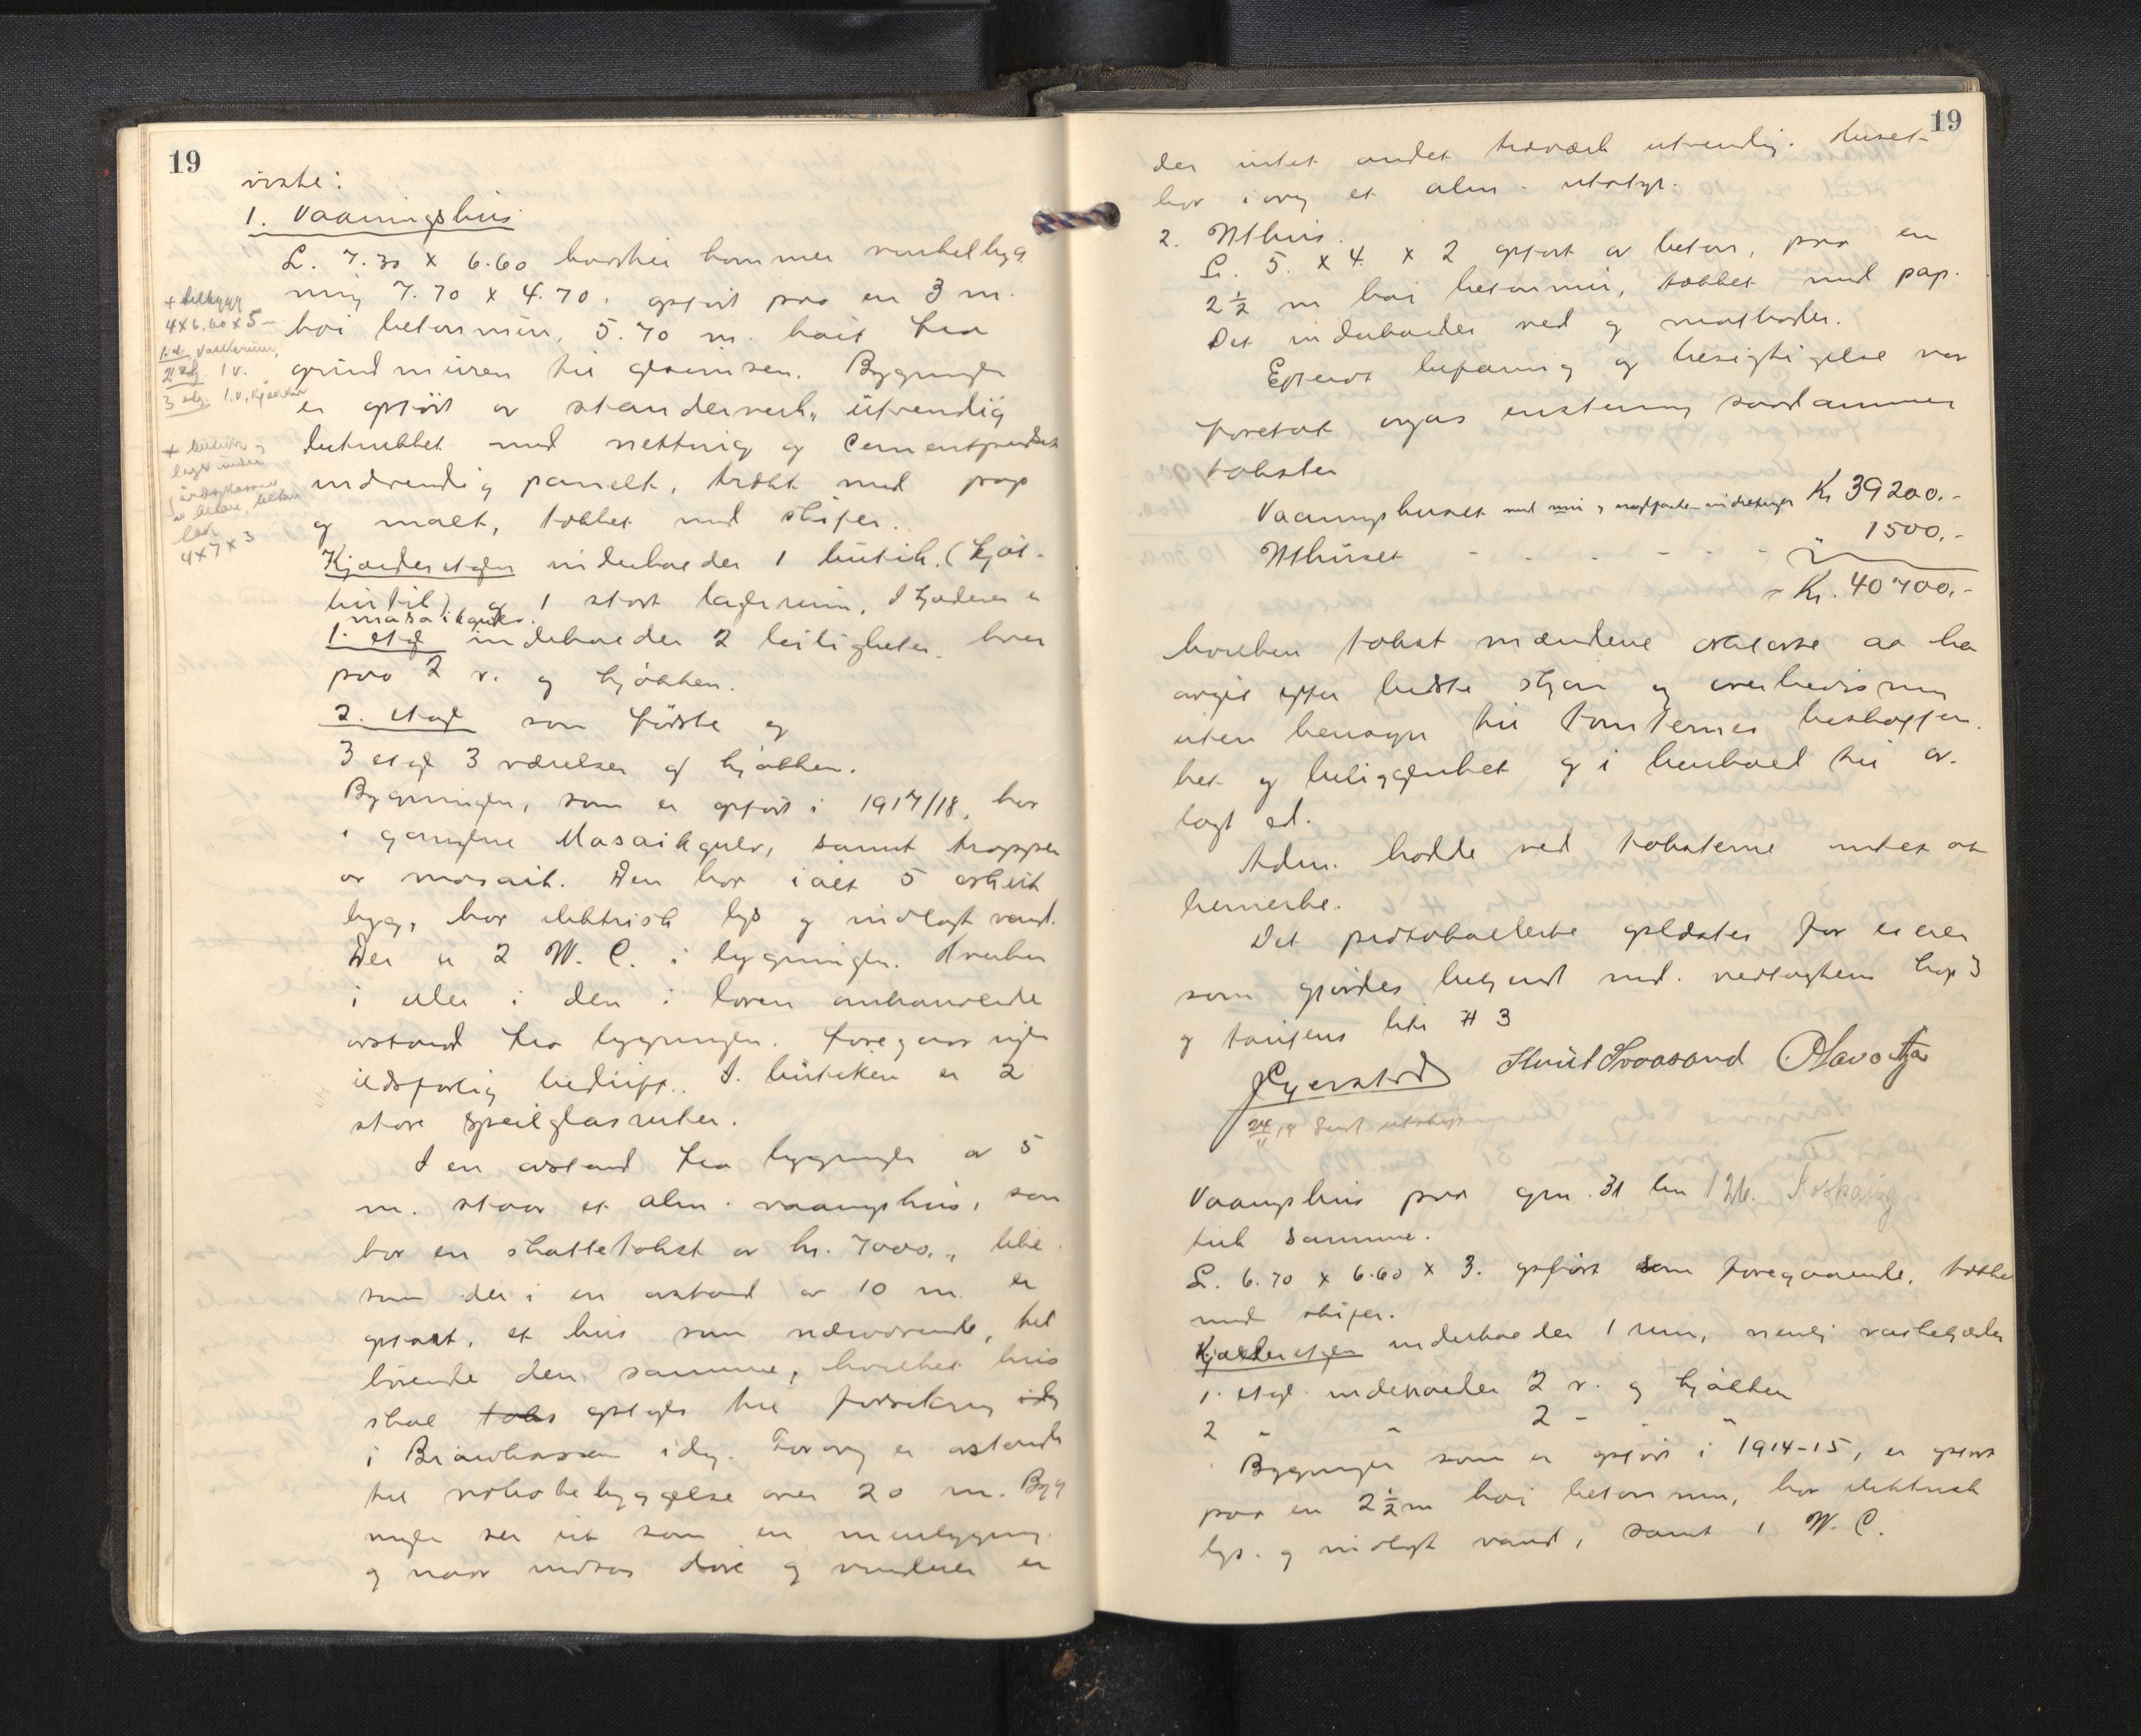 19
viste:
1. Vaaningshus
L. 7.30 x 6.60 hvortil kommer vinkelbyg
ning 7.70 x 4.70. opført paa en 3 m.
høi betonmur, 5.70 m. høit fra
grundmuren til gesimsen. Bygningen
er opført av standerverk, utvendig
betrukket med netting og Cementpudset
indvendig panelt, trukket med pap
og malt, tækket med skifer.
Kjælderetagen indeholder 1 butik (kjøt-
butik) og 1 stort lagerrum. I kjælderen er
mosaikgulv.
1. etg indeholder 2 leiligheter, hver
paa 2 v. og kjøkken.
2. etage som første og
3 etge 3 værelser og kjøkken.
Bygningen, som er opført i 1917/18, har
i gangene Mosaikgulv, samt trapper
av mosaik. Den har ialt 5
har elektrisk lys og indlagt vand.
Der er 2 W. C. i bygningen. Hverken
i eller i den i loven omhandlede
avstand fra bygningen foregaar nogen
ildsfarlig bedrift. I butiken er 2
store speilglasruter.
I en avstand fra bygningen av 5
m. staar et alm. vaaningshus, som
har en skattetakst av kr. 7000.,, like
som der i en avstand av 10 m. er
opført et hus som nærværende, til
hørende den samme, hvilket hus
skal optages til forsikring
i Brandkassen idag. Forøvrig er avstanden
til nabobebyggelse over 20 m. Byg
ningen ser ut som en murbygning
og naar undtas døre og vinduer er
+ tilbygg
4x6,60x5 m
1. et
2 etg. 1 v.
3 etg. 1 v, kjøkken
+ butik og
lager under
av beton, beton
4x7x3
19
der intet andet træværk utvendig. Huset
har iøvrig et alm. utstyr.
2. Uthus.
L. 5. x 4. x 2 opført av beton, paa en
2 1/2 m høi betonmur, tækket med pap.
Det indeholder ved og matboder.
Efter befaring og besigtigelse var
foretat avgas enstemmig saadanne
takster
Vaaningshuset med mur og indretninger Kr 39200.-
Uthuset - - - - - - " 1500.-
Kr. 40700.-
hvilken takst mændene erklærte aa ha
avgit efter bedste skjøn og overbevisning
uten hensyn til tomternes beskaffen
het og beliggenhet og i henhold til av-
lagt ed.
Adm. hadde ved taksterne intet at
bemerke.
Det protokollerte oplæstes for eieren
som gjordes bekjendt med vedtægtens kap 3
og tariffens litr H 3
Knut Svaasand
24/11 19 Sendt utskrift
Vaaningshus paa grn. 31 bn 126.
tilh samme.
L. 6.70 x 6.60 x 3. opført som foregaaende, tækket
med skifer.
Kjælderetagen indeholder 1 rum, nemlig vaskekjælder
1. etge. indeholder 2 v. og kjøkken
2 " " 2 - "
Bygningen som er opført i 1914-15, er opført
paa en 2 1/2 m høi betonmur, har elektrisk
lys og indlagt vand, samt 1 W. C.